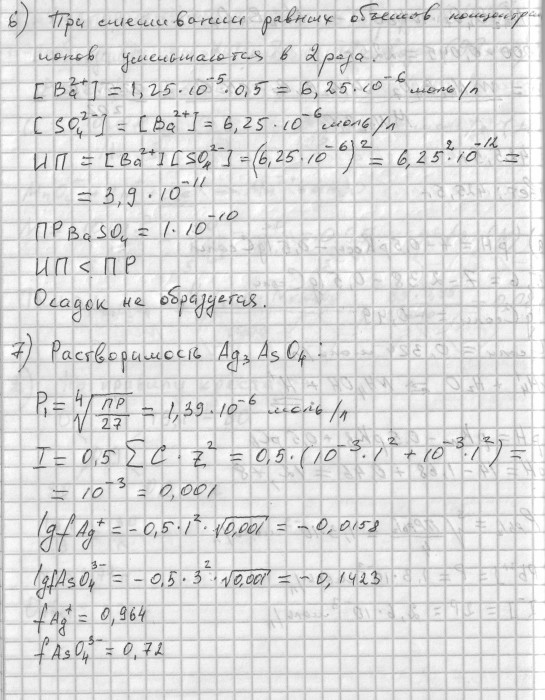 6) При смешивании равных объемов концентра
ионов уменьшаются в 2 раза.
[Ba²⁺] = 1,25·10⁻⁵·0,5 = 6,25·10⁻⁶ моль/л
[SO₄²⁻] = [Ba²⁺] = 6,25·10⁻⁶ моль/л
ИП = [Ba²⁺][SO₄²⁻] = (6,25·10⁻⁶)² = 6,25²·10⁻¹² =
= 3,9·10⁻¹¹
ПР BaSO₄ = 1·10⁻¹⁰
ИП < ПР
Осадок не образуется.
7) Растворимость Ag₃AsO₄:
P₁ = ⁴√(ПР/27) = 1,39·10⁻⁶ моль/л
I = 0,5 Σ C·Z² = 0,5·(10⁻³·1² + 10⁻³·1²) =
= 10⁻³ = 0,001
lgfAg⁺ = -0,5·1²·√0,001 = -0,0158
lgfAsO₄³⁻ = -0,5·3²·√0,001 = -0,1423
fAg⁺ = 0,964
fAsO₄³⁻ = 0,72